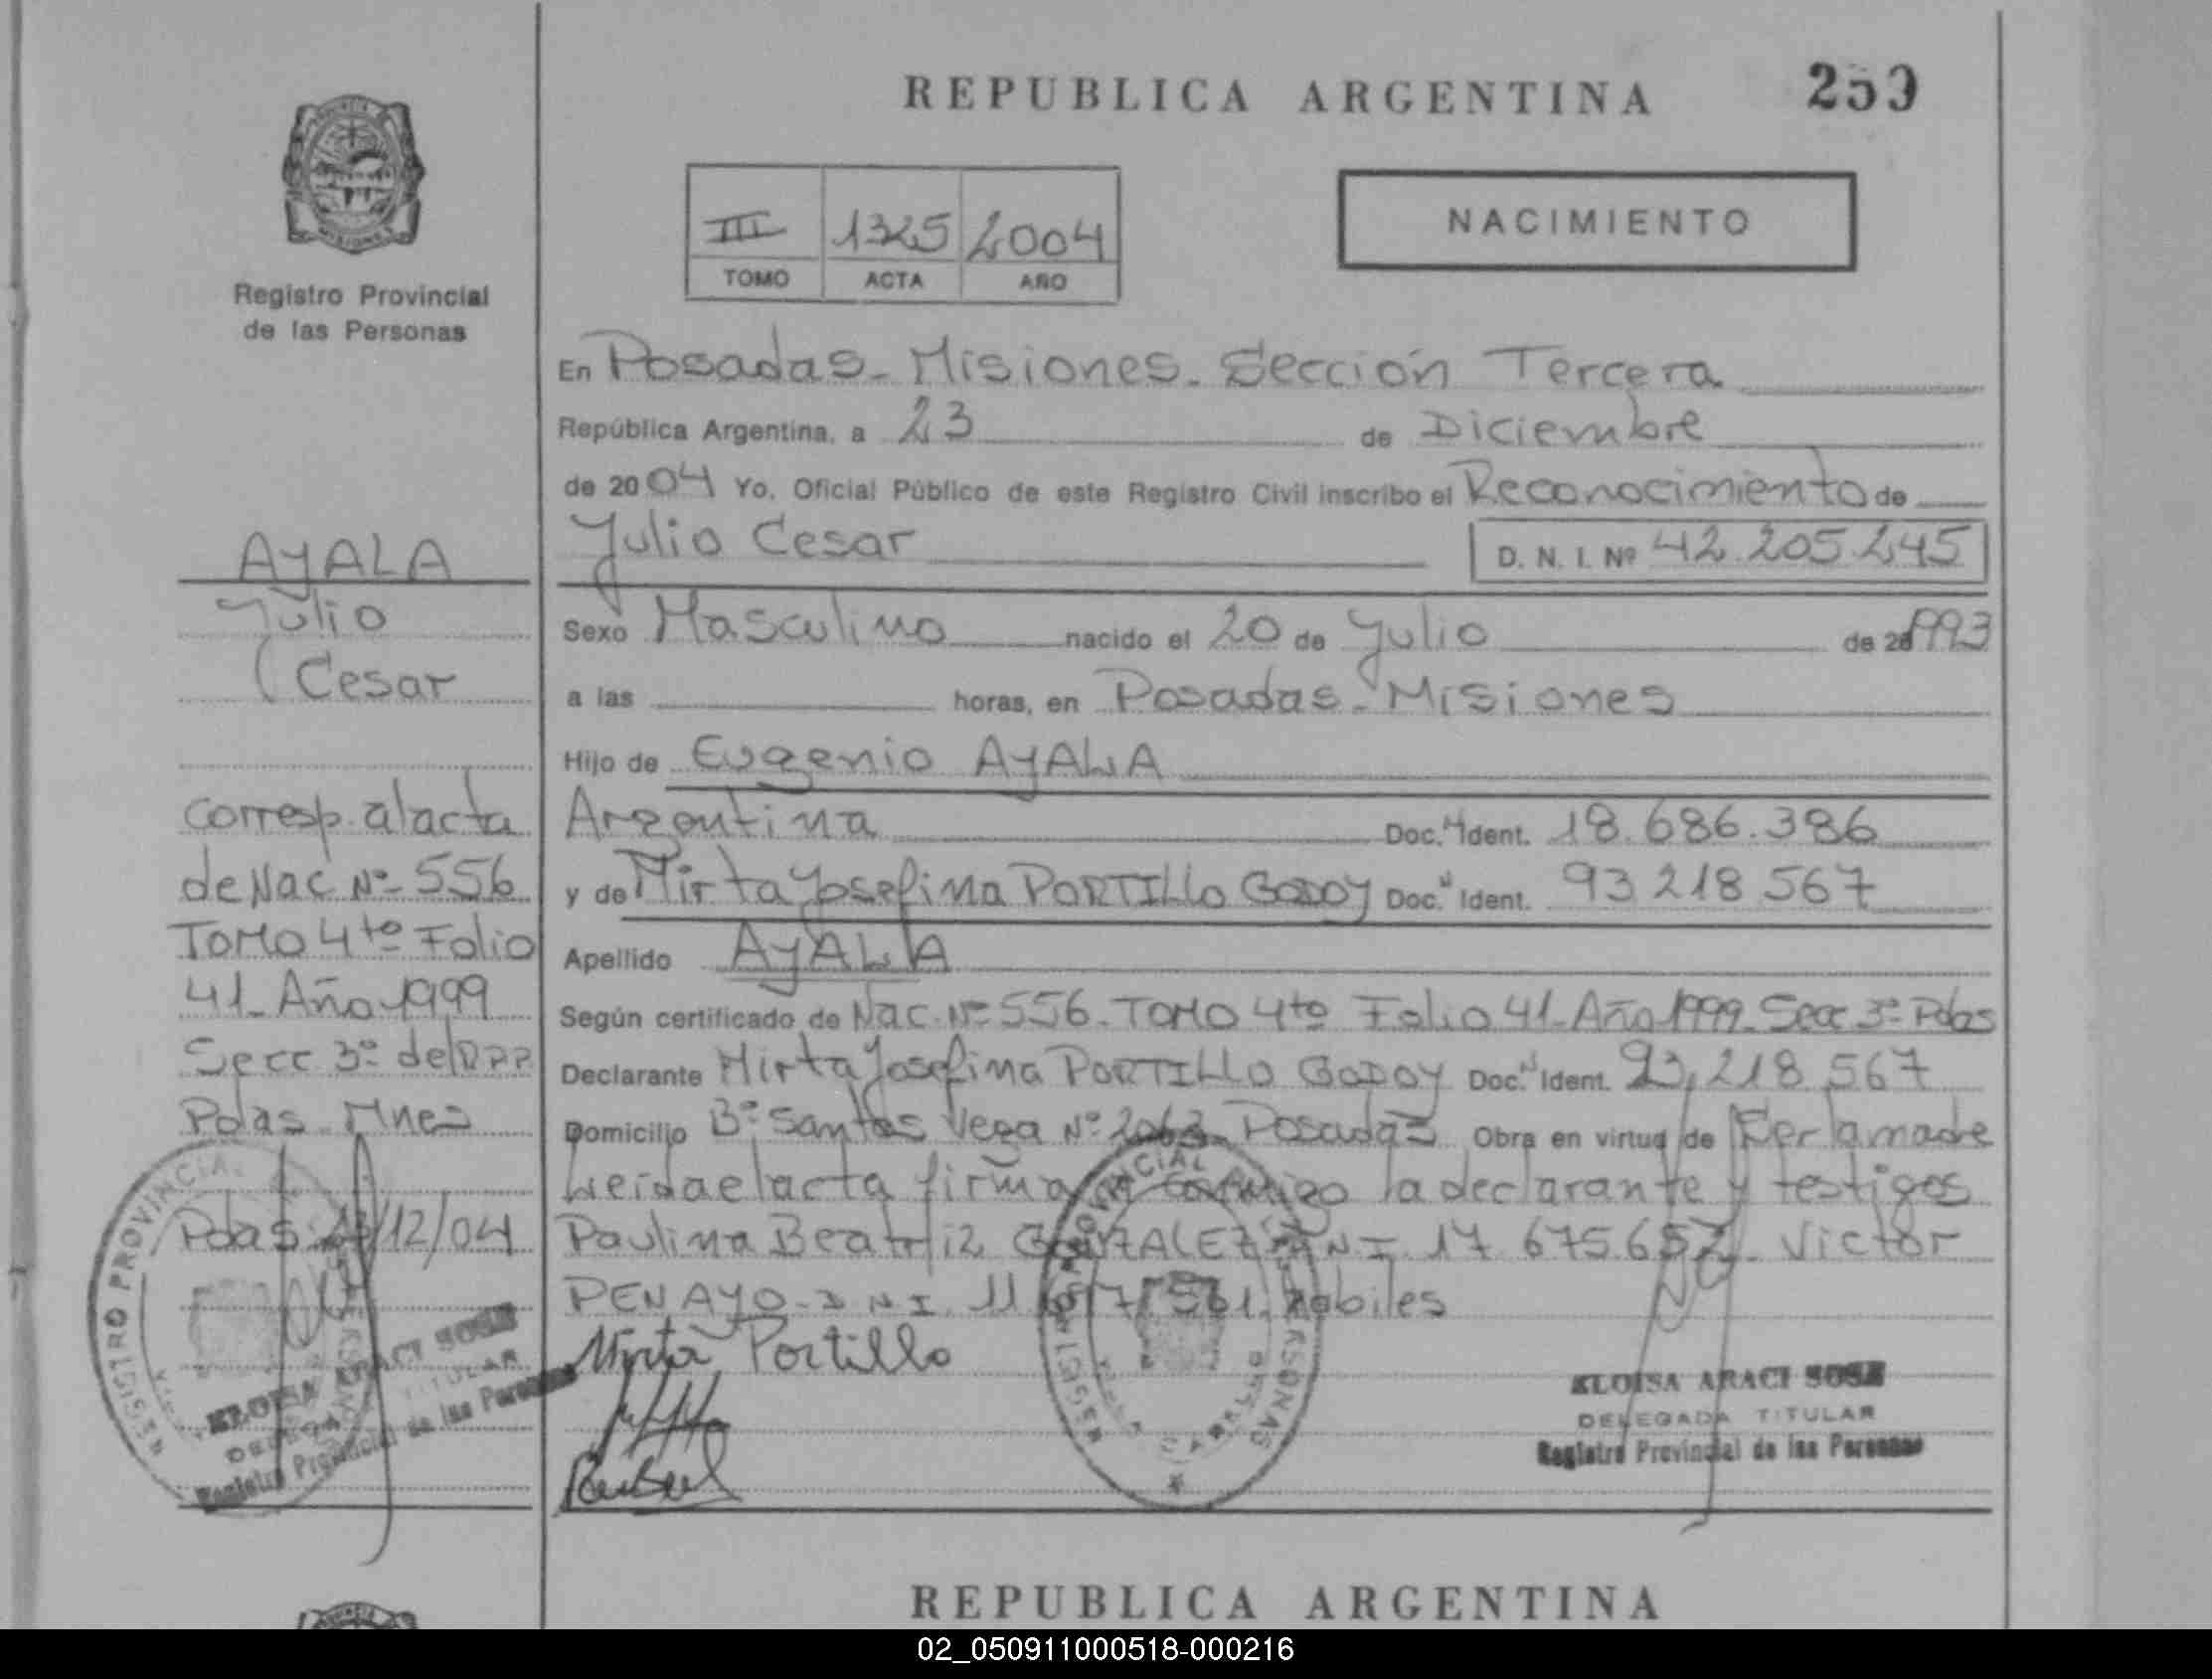 REPUBLICA ARGENTINA 259
III 1325 2004
TOMO ACTA AÑO
NACIMIENTO
Registro Provincial
de las Personas
AYALA
Julio
Cesar
corresp. al acta
de Nac Nº 556
TOMO 4to Folio
41_ Año 1999
Secc 3º del RPP
Pdas Mnes
Pdas 23/12/04
REGISTRO PROVINCIAL
ELOISA ARACI SOSA
DELEGADA TITULAR
Registro Provincial de las Personas
En Posadas_ Misiones. Sección Tercera
República Argentina, a 23 de Diciembre
de 2004 Yo, Oficial Público de este Registro Civil inscribo el Reconocimiento de
Julio Cesar D. N. I. Nº 42.205.245
Sexo Masculino nacido el 20 de Julio de 1993
a las horas, en Posadas_ Misiones
Hijo de Eugenio AYALA
Argentina Doc. Ident. 18.686.386
y de Mirta Josefina PORTILLO GODOY Doc. Ident. 93 218 567
Apellido AYALA
Según certificado de Nac. Nº 556_ TOMO 4to Folio 41_ Año 1999_ Secc 3º Pdas
Declarante Mirta Josefina PORTILLO GODOY Doc. Ident. 93,218 567
Domicilio Bº Santos Vega Nº 2063 Posadas Obra en virtud de Ser la madre
Leida el acta firma conmigo la declarante y testigos
Paulina Beatriz GONZALEZ DNI 17 675.652 Victor
PENAYO_ DNI 11 561 habiles
Mirta Portillo
REGISTRO PROVINCIAL DE LAS PERSONAS
ELOISA ARACI SOSA
DELEGADA TITULAR
Registro Provincial de las Personas
REPUBLICA ARGENTINA
02_050911000518-000216